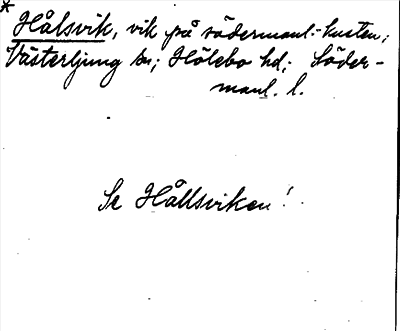 * Hålsvik, vik på södermanl.-kusten;
Västerljung sn; Hölebo hd; Söder-
manl. l.
Se Hållsviken!